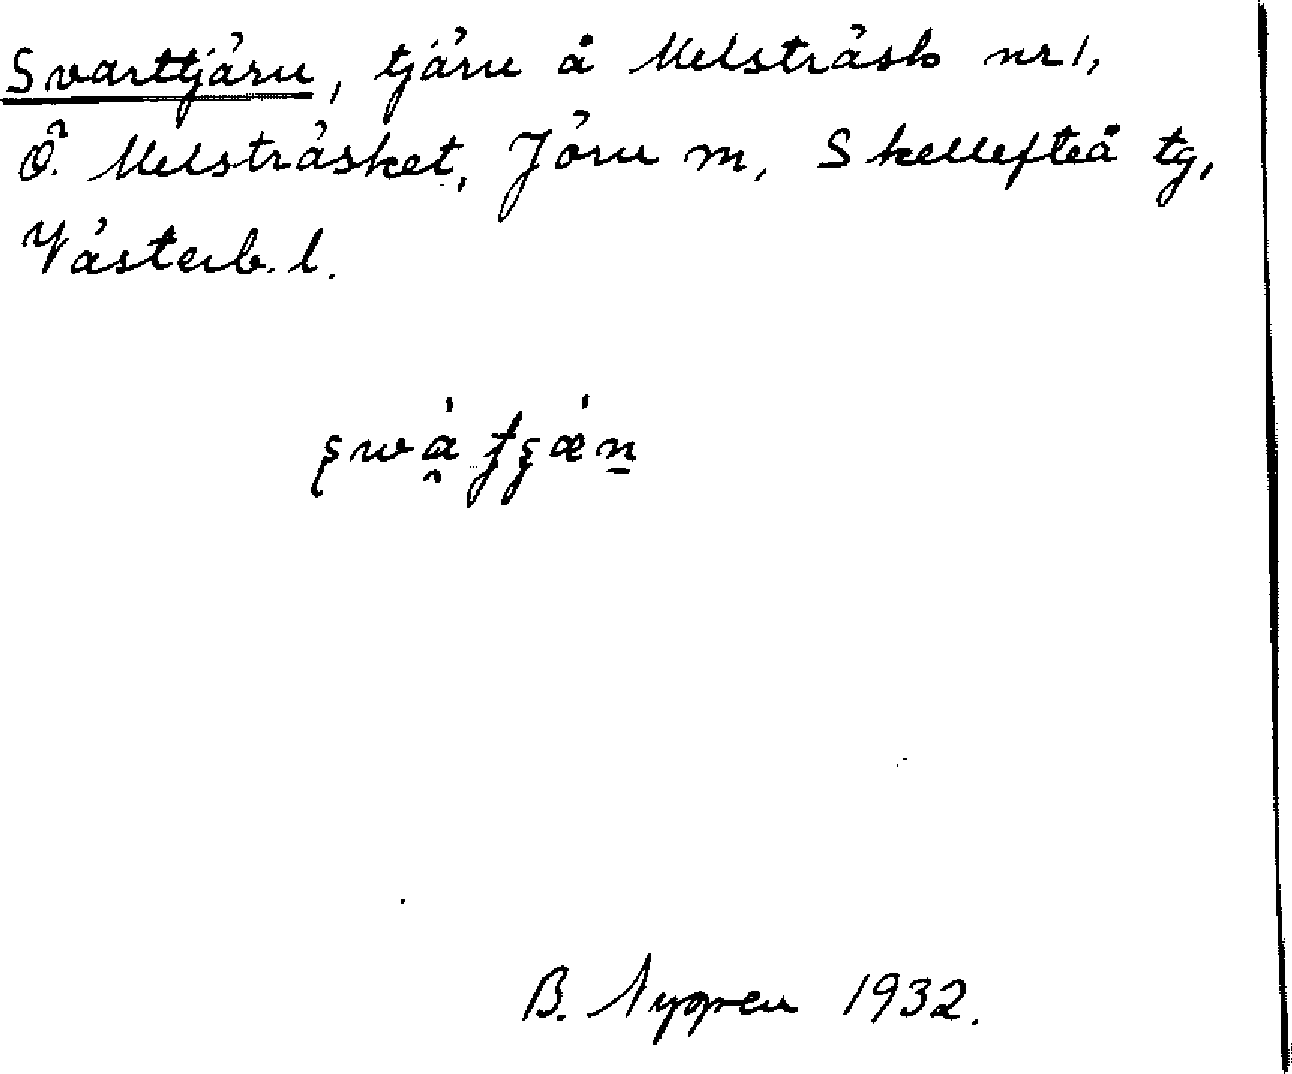 Svarttjärn, tjärn å Melsträsk nr 1,
Ö. Melsträsket, Jörn sn, Skellefteå tg,
Västerb. l.
B. Nygren 1932.